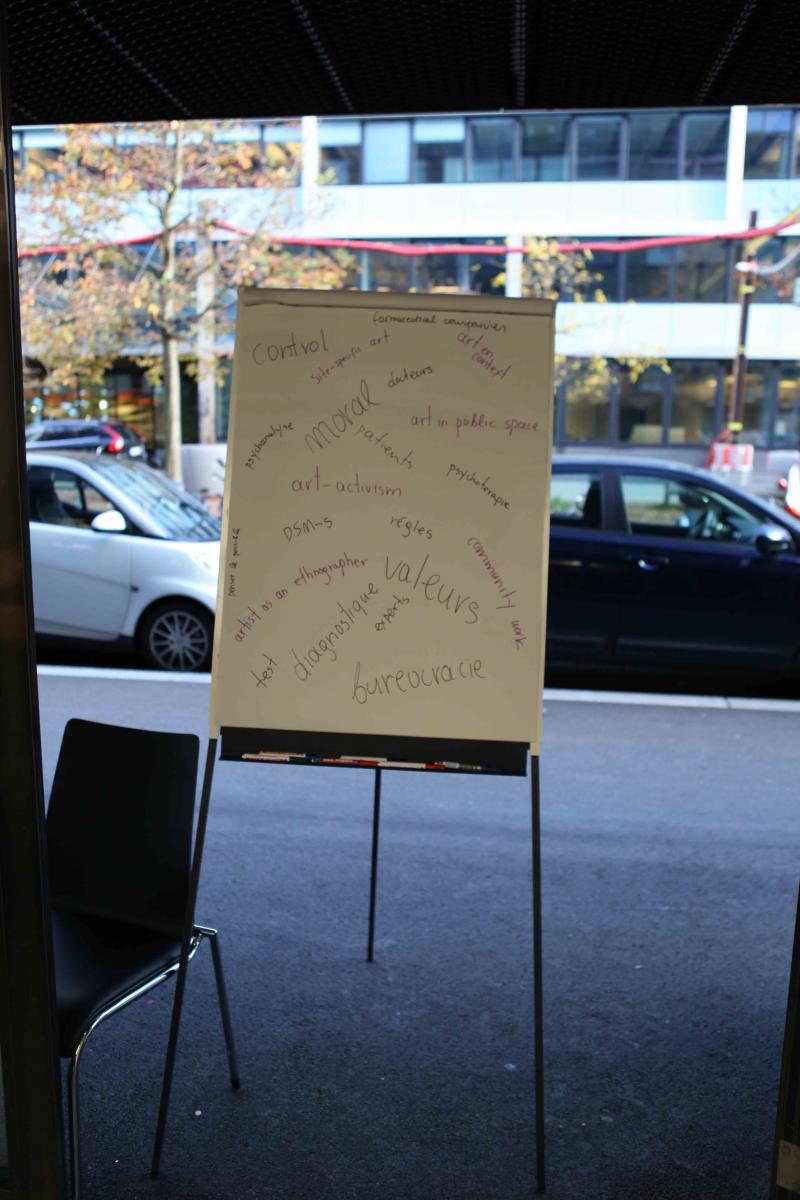 farmaceutical companies
control
site-specific art
art en
context
docteurs
moral
art in public space
psychanalyse
patients
psychoterapie
art-activism
DSM-5
régles
community work
artist as an ethnographer
valeurs
diagnostique
experts
test
bureocracie